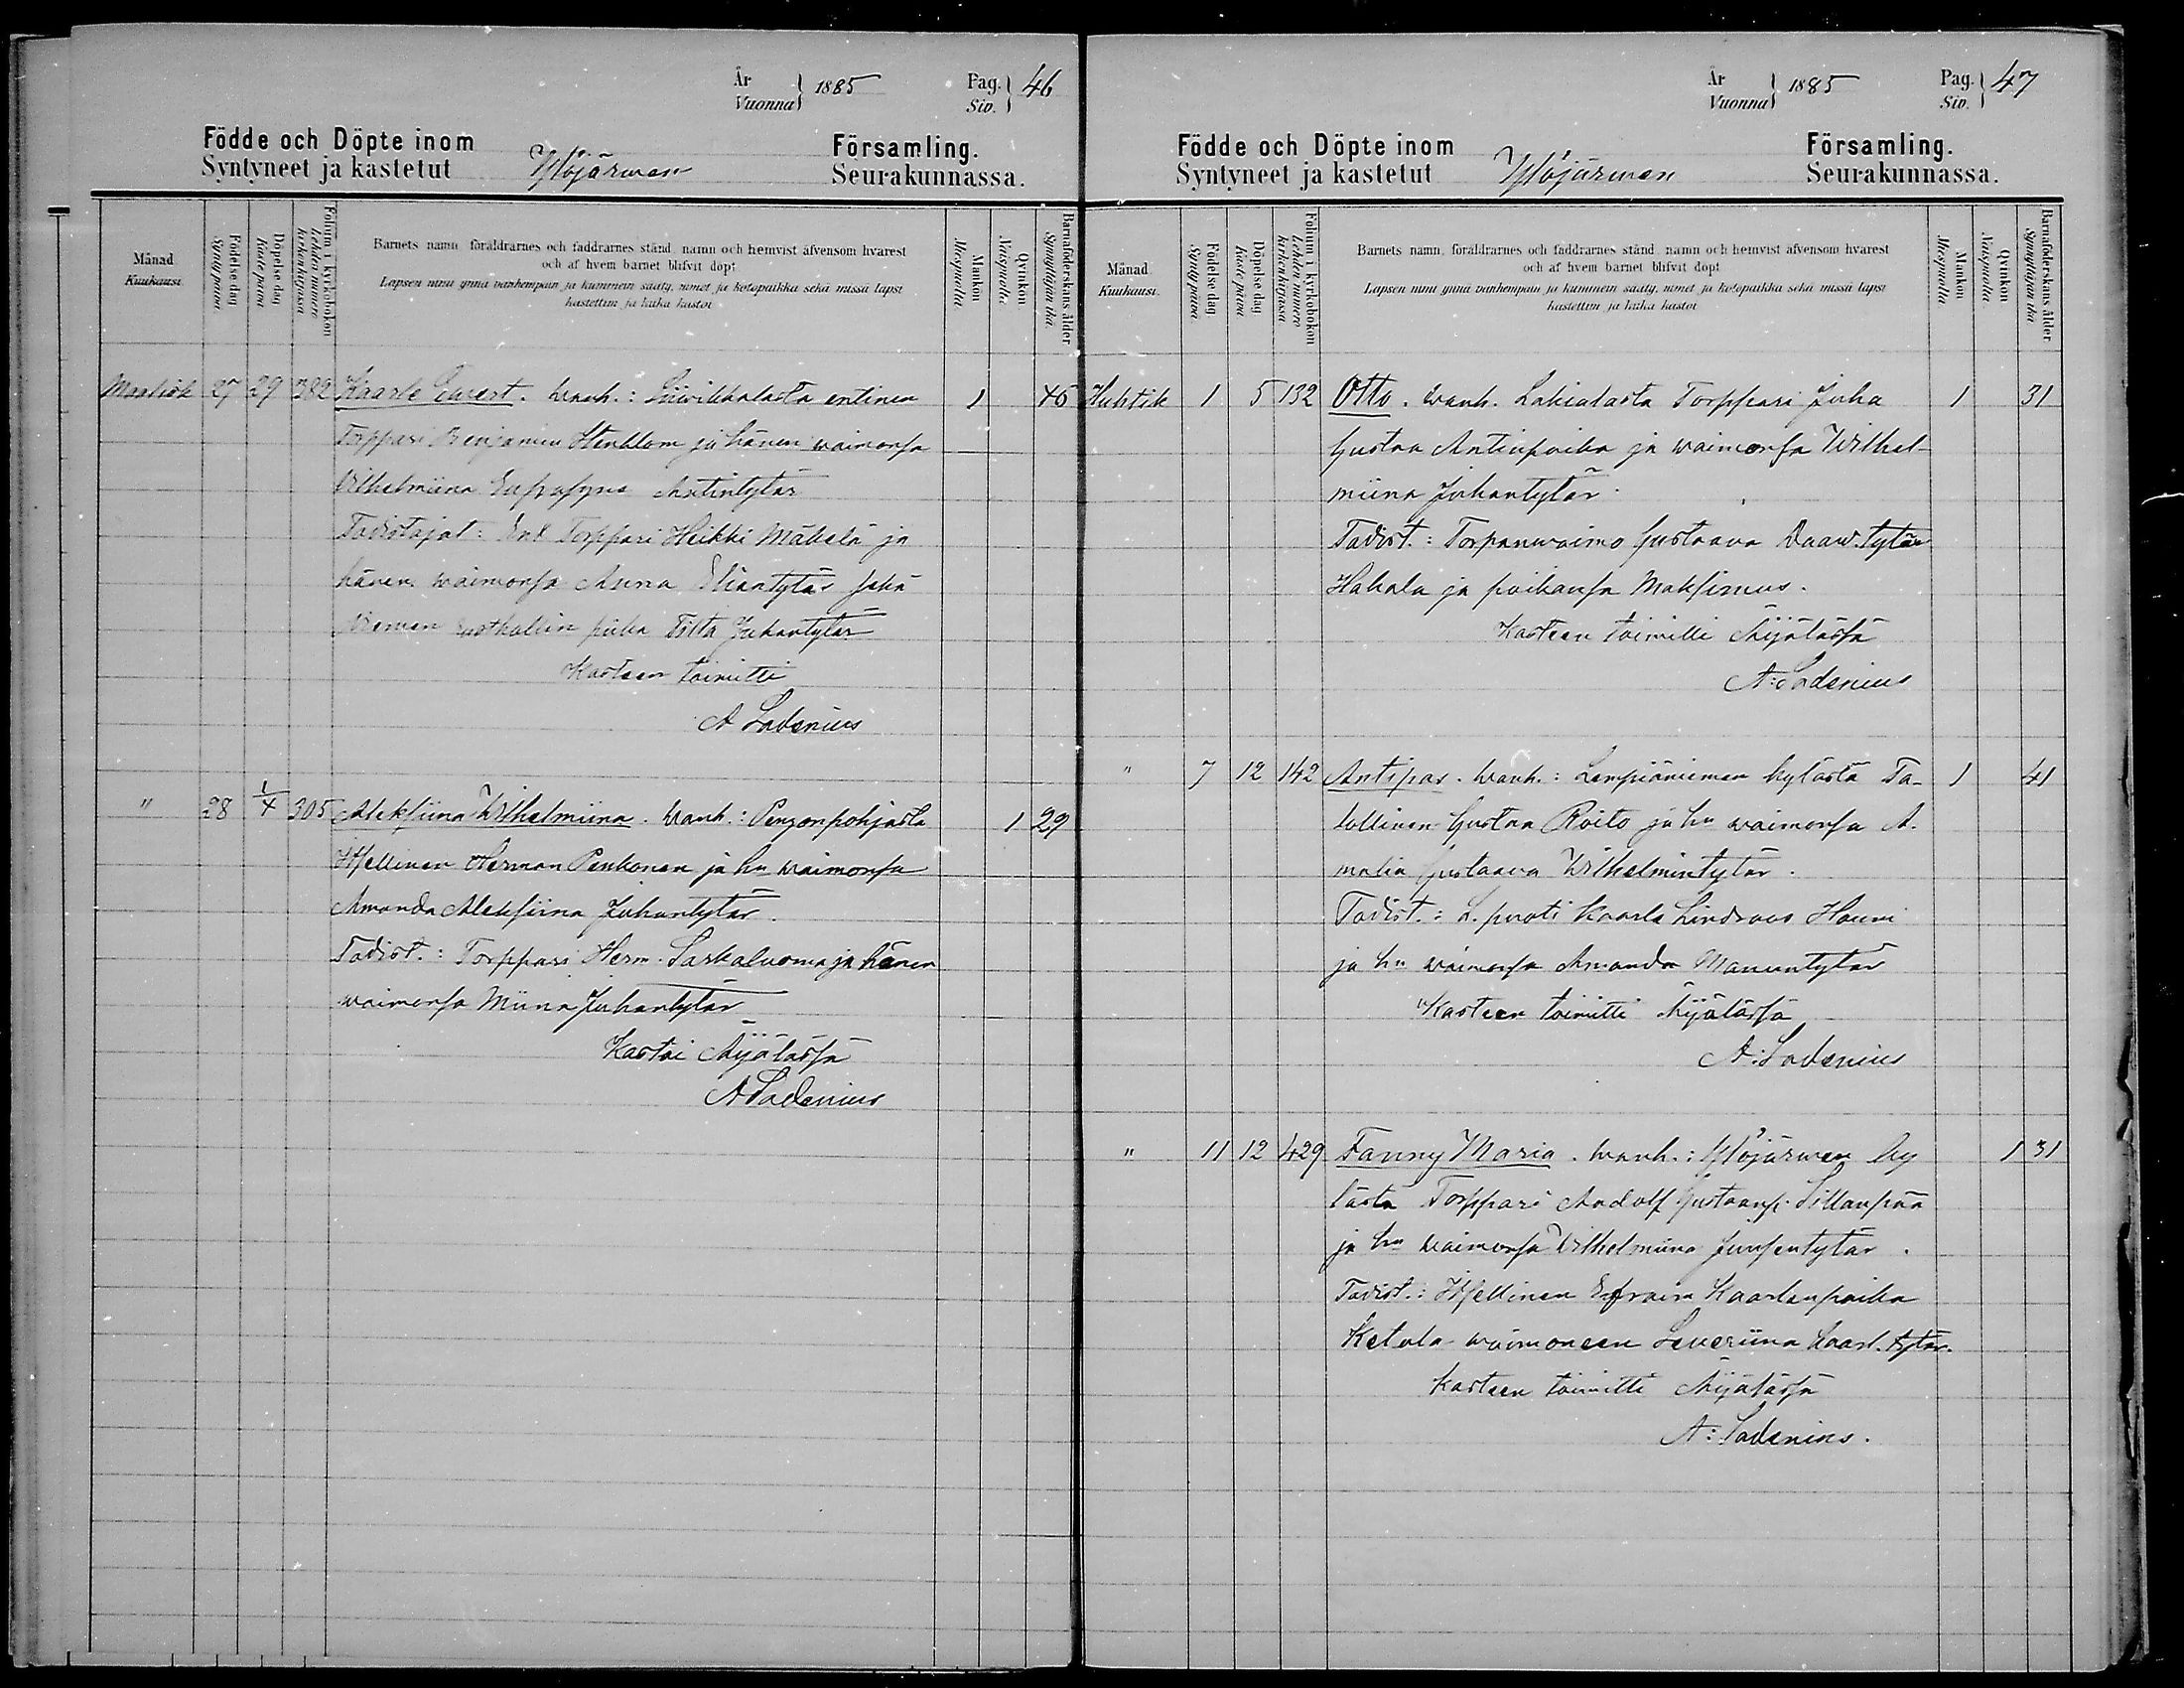 År
Vuonna } 1885 Pag.
Siv. } 46
Födde och Döpte inom Församling.
Syntyneet ja kastetut Ylöjärwen Seurakunnassa.
Månad
Kuukausi
Födelse dag
Syntypäivä
Döpelse dag
Kastepäivä
Folium i kyrkobokon
Lehden numero
kirkonkirjassa
Barnets namn, föräldrarnes och faddrarnes stånd, namn och hemvist äfvensom hvarest
och af hvem barnet blifvit döpt
Lapsen nimi ynnä vanhempain ja kummein sääty, nimet ja kotopaikka sekä missä lapsi
kastettiin ja kuka kastoi
Mankön
Miespuolia
Qvinkön
Naispuolia
Barnaföderskans ålder
Synnyttäjän ikä
Maalisk 27 29 382 Kaarle Ewert. Wanh.: Siiwikkalasta entinen 1 46
Torppari Benjamin Stenblom ja hänen waimonsa
Wilhelmiina Eufrosyne Antintytär
Todistajat: Ent Torppari Heikki Mäkelä ja
hänen waimonsa Anna Eliantytär sekä
Niemen piika Fiita Juhantytär
Kasteen toimitti
A Ladenius
" 28 1/4 305 Aleksiina Wilhelmiina. Wanh.: Penzonpohjasta 1 29
Itsellinen Herman Penkonen ja hn waimonsa
Amanda Aleksiina Juhantytär.
Todist.: Torppari Herm. Sarkaluoma ja hänen
waimonsa Miina Juhantytär
Kastoi Äijälässä
A Ladenius
År
Vuonna } 1885 Pag.
Siv. } 47
Födde och Döpte inom Församling.
Syntyneet ja kastetut Ylöjärwen Seurakunnassa.
Månad
Kuukausi.
Födelse dag
Syntypäivä
Döpelse dag
Kastepäivä
Folium i kyrkobokon
Lehden numero
kirkonkirjassa
Barnets namn, föräldrarnes och faddrarnes stånd, namn och hemvist äfvensom hvarest
och af hvem barnet blifvit döpt
Lapsen nimi ynnä vanhempain ja kummein sääty, nimet ja kotopaikka sekä missä lapsi
kastettiin ja kuka kastoi
Mankön
Miespuolia
Qvinkön
Naispuolia
Barnaföderskans ålder
Synnyttäjän ikä
Huhtik 1 5 132 Otto. Wanh. Lakialasta Torppari Juha 1 31
Gustaa Antinpoika ja waimonsa Wilhel-
miina Juhantytär.
Todist.: Torpanwaimo Gustaava Daaw.tytär
Hakala ja poikansa Maksimus.
Kasteen toimitti Äijälässä
A: Ladenius
" 7 12 142 Antipas. Wanh.: Lempiäniemen kylästä Ta- 1 41
lollinen Gustaa Roito ja hn waimonsa A.
malia Gustaava Wilhelmintytär.
Todist.: L. puoti Kaarle Lindroos Hauni
ja hn waimonsa Amanda Manuntytär
Kasteen toimitti Äijälässä
A: Ladenius
" 11 12 429 Fanny Maria. Wanh.: Ylöjärwen ky 1 31
lästä Torppari Aadolf Gustaanp. Sillanpää
ja hn waimonsa Wilhelmiina Junsentytär.
Todist.: Itsellinen Efraim Kaarlenpoika
Ketola waimoneen Seweriina Kaarl.tytär.
Kasteen toimitti Äijälässä
A: Ladenius.